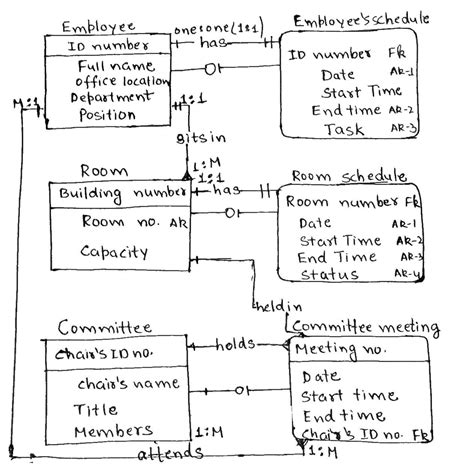 Employee
one:one (1:1)
Employee's schedule
ID number
has
Full name
office location
Department
Position
ID number Fk
Date AR-1
Start Time
End time AR-2
Task AR-3
M:1
1:1
sits in
1:M
1:1
Room
Building number
has
Room no. AR
Capacity
Room schedule
Room number Fk
Date AR-1
Start Time AR-2
End Time AR-3
Status AR-4
held in
Committee
Chair's ID no.
holds
chair's name
Title
Members
1:M
Committee meeting
Meeting no.
Date
Start time
End time
Chair's ID no. Fk
attends
1:M